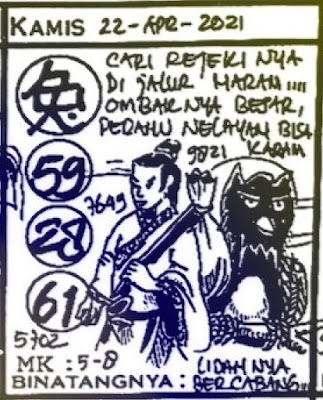 KAMIS 22-APR-2021
CARI REJEKI NYA
DI JALUR MARAH....
OMBAK NYA BESAR,
PERAHU NELAYAN BISA
KARAM
9821
兔
59
7649
28
61
5702
MK : 5-8
LIDAH NYA
BINATANGNYA : BERCABANG...